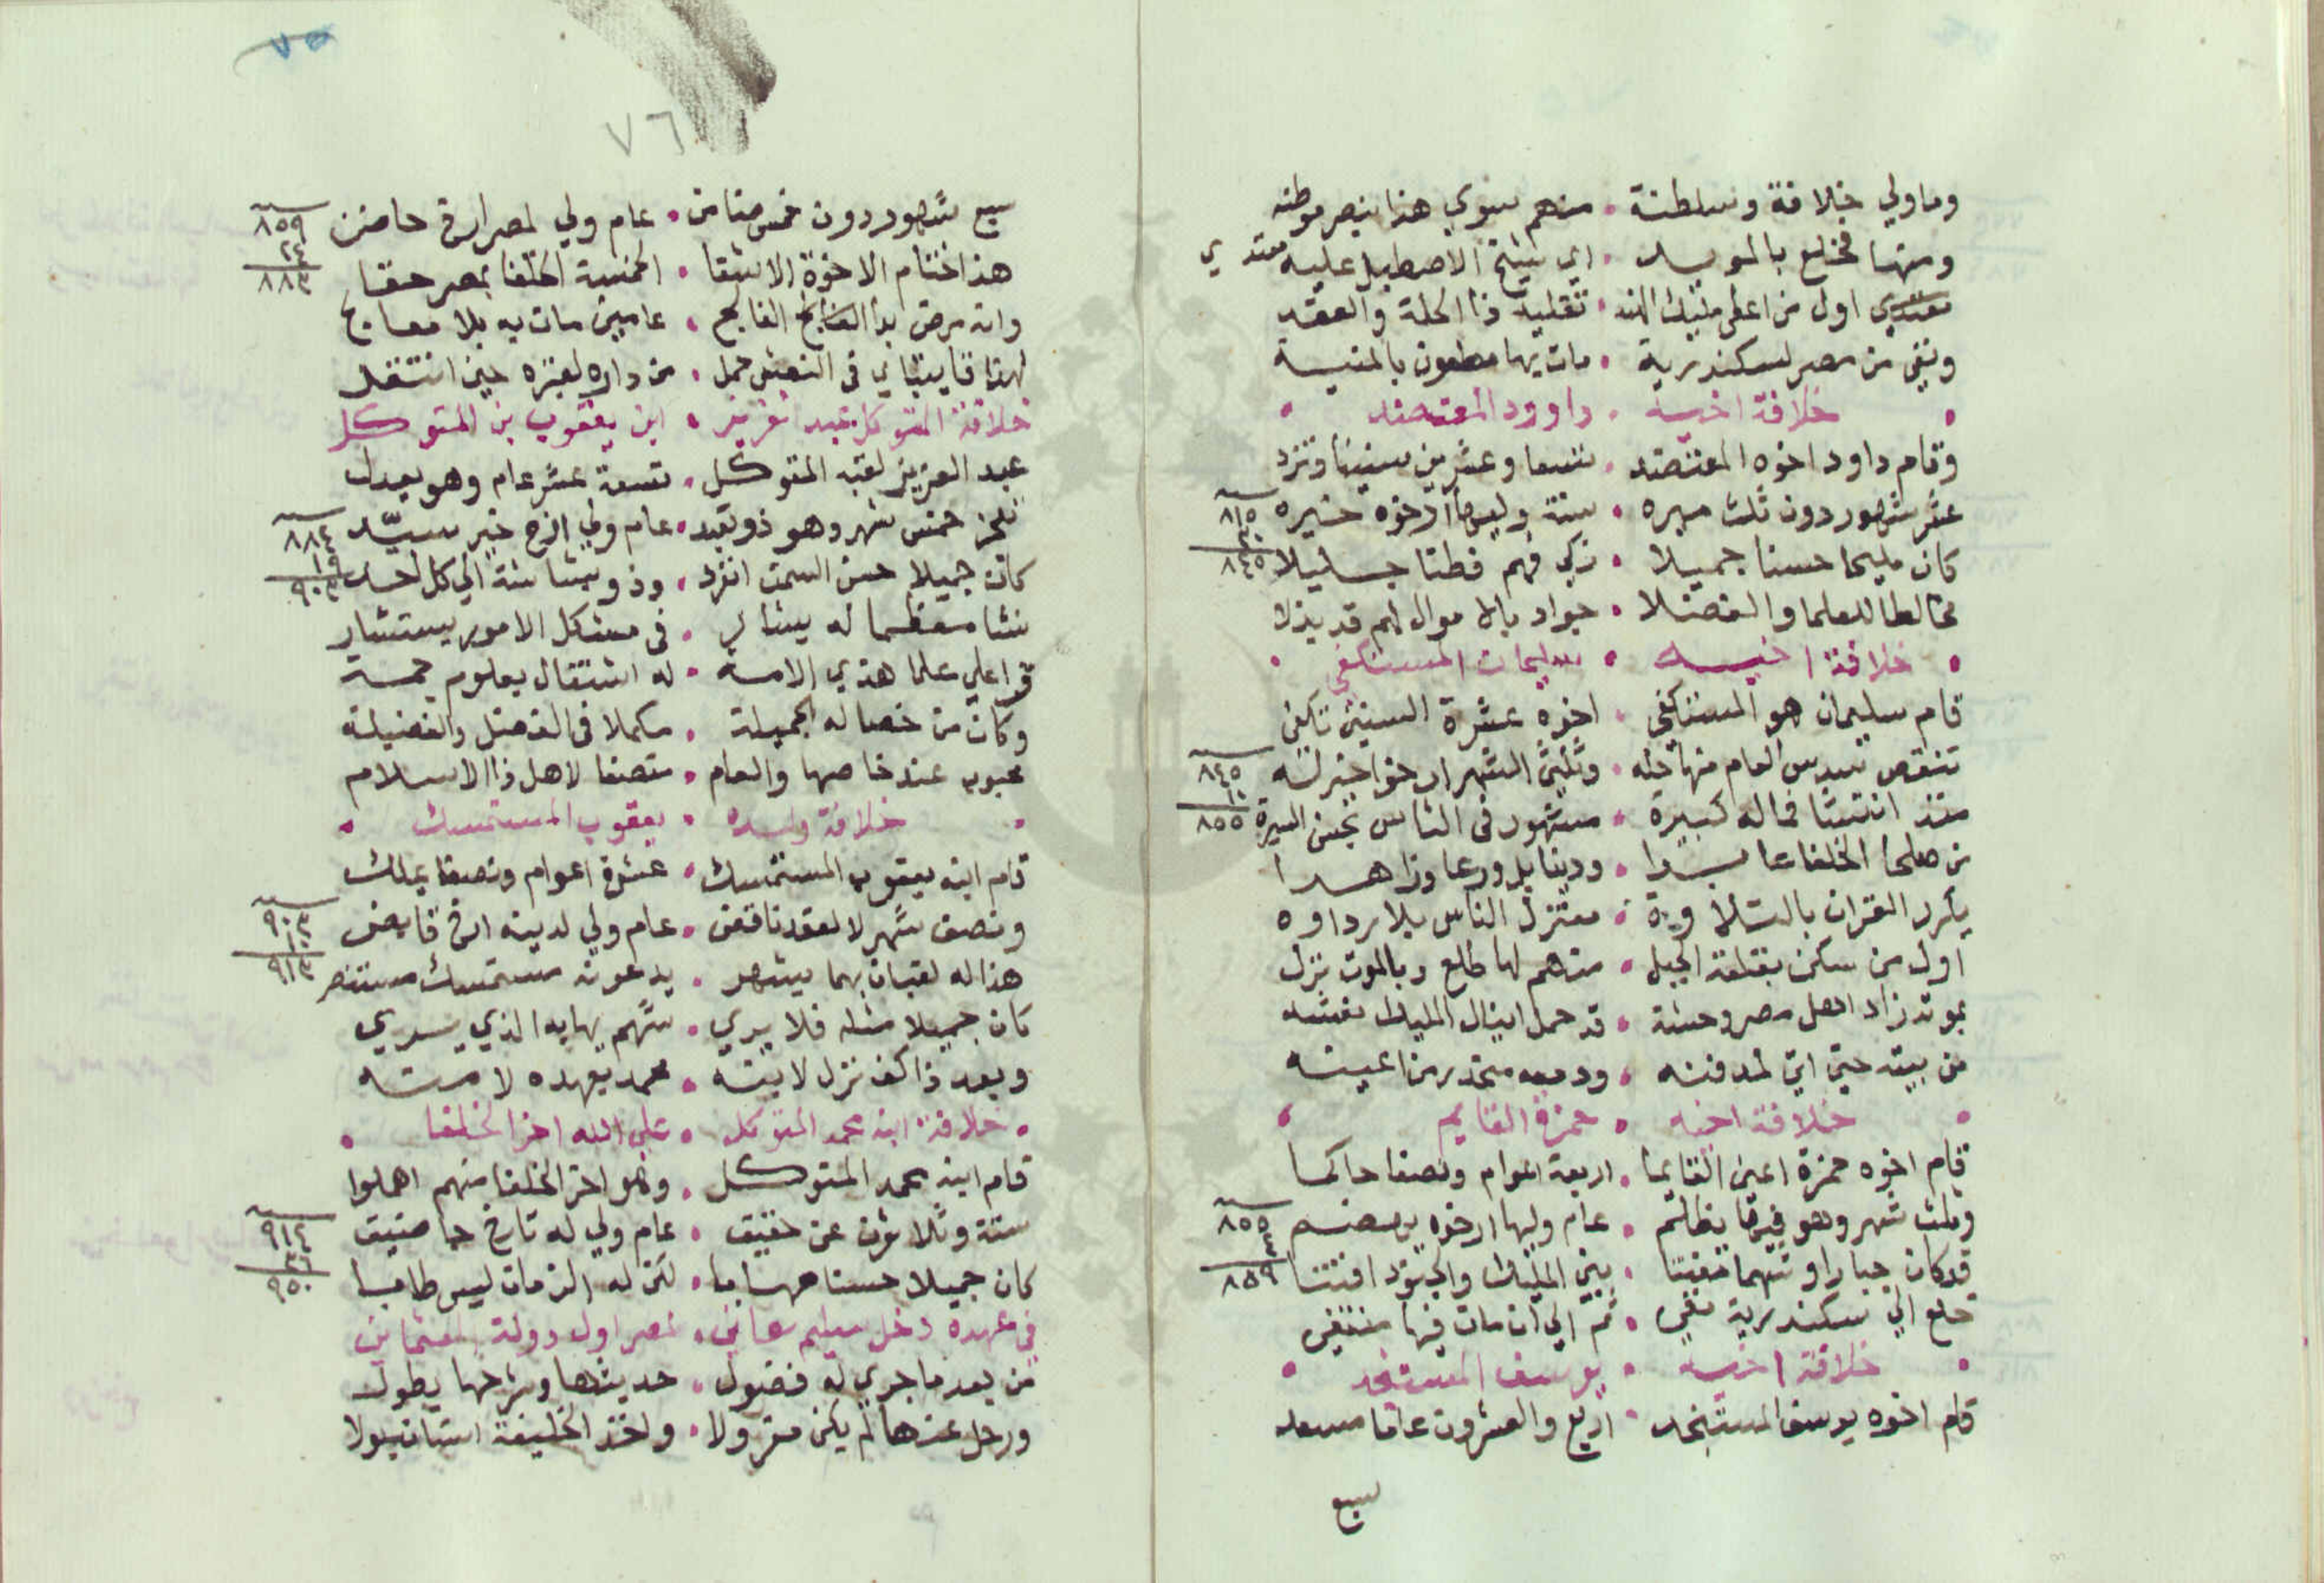 وما ولي خلافة وسلطنة . منهم سوي هذا بنصر موطنه
ومنها فخلع بالمويد . اي شيخ الاصطبل عليه معتدي
معتدي اول من اعطي مليك الهند . تقليد ذا الحلة والعقد
ونفي من مصر لسكندرية . مات بها مطعون بالمنية
خلافة اخيه . داوود المعتضد
وقام داود اخوه المعتضد . تسعا وعشرين سنينا وتزد
عشر شهور دون ثلث مبره . ستة وليها ارخوه خيره
٨١٥
٣٠
٨٤٥
كان مليحا حسنا جميلا . زكي فهم فطنا جليلا
مخالطا للعلما والفضلا . جواد بالاموال لهم قد بذلا
خلافة اخيه . سليمان المستكفي
قام سليمان هو المستكفي . اخوه عشرة السنين تكفي
تنقص سدس العام منها جله . وثلثي الشهر ارخوا خير له
٨٤٥
١٠
٨٥٥
منذ انتشا فماله كبيرة . مشهور في الناس بحسن السيرة
من صلحا الخلفا عابدا . ودينا بل ورعا وزاهدا
يكرر القران بالتلاوة . معتزل الناس بلا رداوه
اول من سكن بقلعة الجبل . منهم لها طلع وبالموت نزل
بموته زاد اهل مصر وحشة . قد حمل اينال المليك نعشه
من بيته حتي اتي لمدفنه . ودمعه منحدر من اعينه
خلافة اخيه . حمزة القايم
قام اخوه حمزة اعني القايما . اربعة اعوام ونصفا حاكما
وثلث شهر وهو فيها يظلم . عام وليها ارخوه
٨٥٥
٤
٨٥٩
قد كان جبارا وشهما . بين المليك والجنود افتتنا
خلع الي سكندرية نفي . ثم الي ان مات فيها منتفي
خلافة اخيه . يوسف المستنجد
قام اخوه يوسف المستنجد . اربع والعشرون عاما مسعد
سبع
٧٥
٧٦
سبع شهور دون خمس ضامن . عام ولي لمصر ارخ حاضن
٨٥٩
٢٤
٨٨٣
هذا ختام الاخوة الاشقا . الخمسة الخلفا بمصر حقا
وانه مرض بدا الفالج . عامين مات به بلا معالج
لهذا قايتباي في النعش حمل . من داره لقبره حين انتقل
خلافة المتوكل عبد العزيز . ابن يعقوب بن المتوكل
عبد العزيز لقبه المتوكل . تسعة عشر عام وهو يعدل
خمس شهر وهو ذو تعبد . عام ولي ارخ خير سيد
٨٨٤
١٩
٩٠٣
كان جميلا حسن السمت انفرد . وذو بشاشة الي كل احد
نشا معظما له يشار . في مشكل الامور يستشار
قرا علي علما هذي الامه . له اشتغال بعلوم جمه
وكان من خصاله الجميلة . مكملا في الفضل والفضيلة
محبوب عند خاصها والعام . متصفا لاهل ذا الاسلام
خلافة ولده . يعقوب المستمسك
قام ابنه يعقوب المستمسك . عشرة اعوام ونصفا يملك
ونصف شهر لا لعقد ناقض . عام ولي لدينه ارخ قابض
٩٠٣
١٠
٩١٣
هذا له لقبان بهما يشهر . يدعونه مستمسك مستنصر
كان جميلا مثله فلا يري . شهم يهابه الذي يسري
وبعد ذا كف نزل لابنه . محمد بعهده لا منه
خلافة ابنه محمد المتوكل . علي الله اخر الخلفا
قام ابنه محمد المتوكل . وهو اخر الخلفا منهم اهملوا
ستة وثلاثون عن حقيق . عام ولي له تارخ
٩١٤
٣٦
٩٥٠
كان جميلا حسنا مهابا . لكن له الزمان ليس طابا
في عهده دخل سليم خان . لمصر اول دولة العثمان
من بعد ما جري له فصول . حديثها وشرحها يطول
ورحل عنها لم يكن معزولا . واخذ الخليفة استانبولا